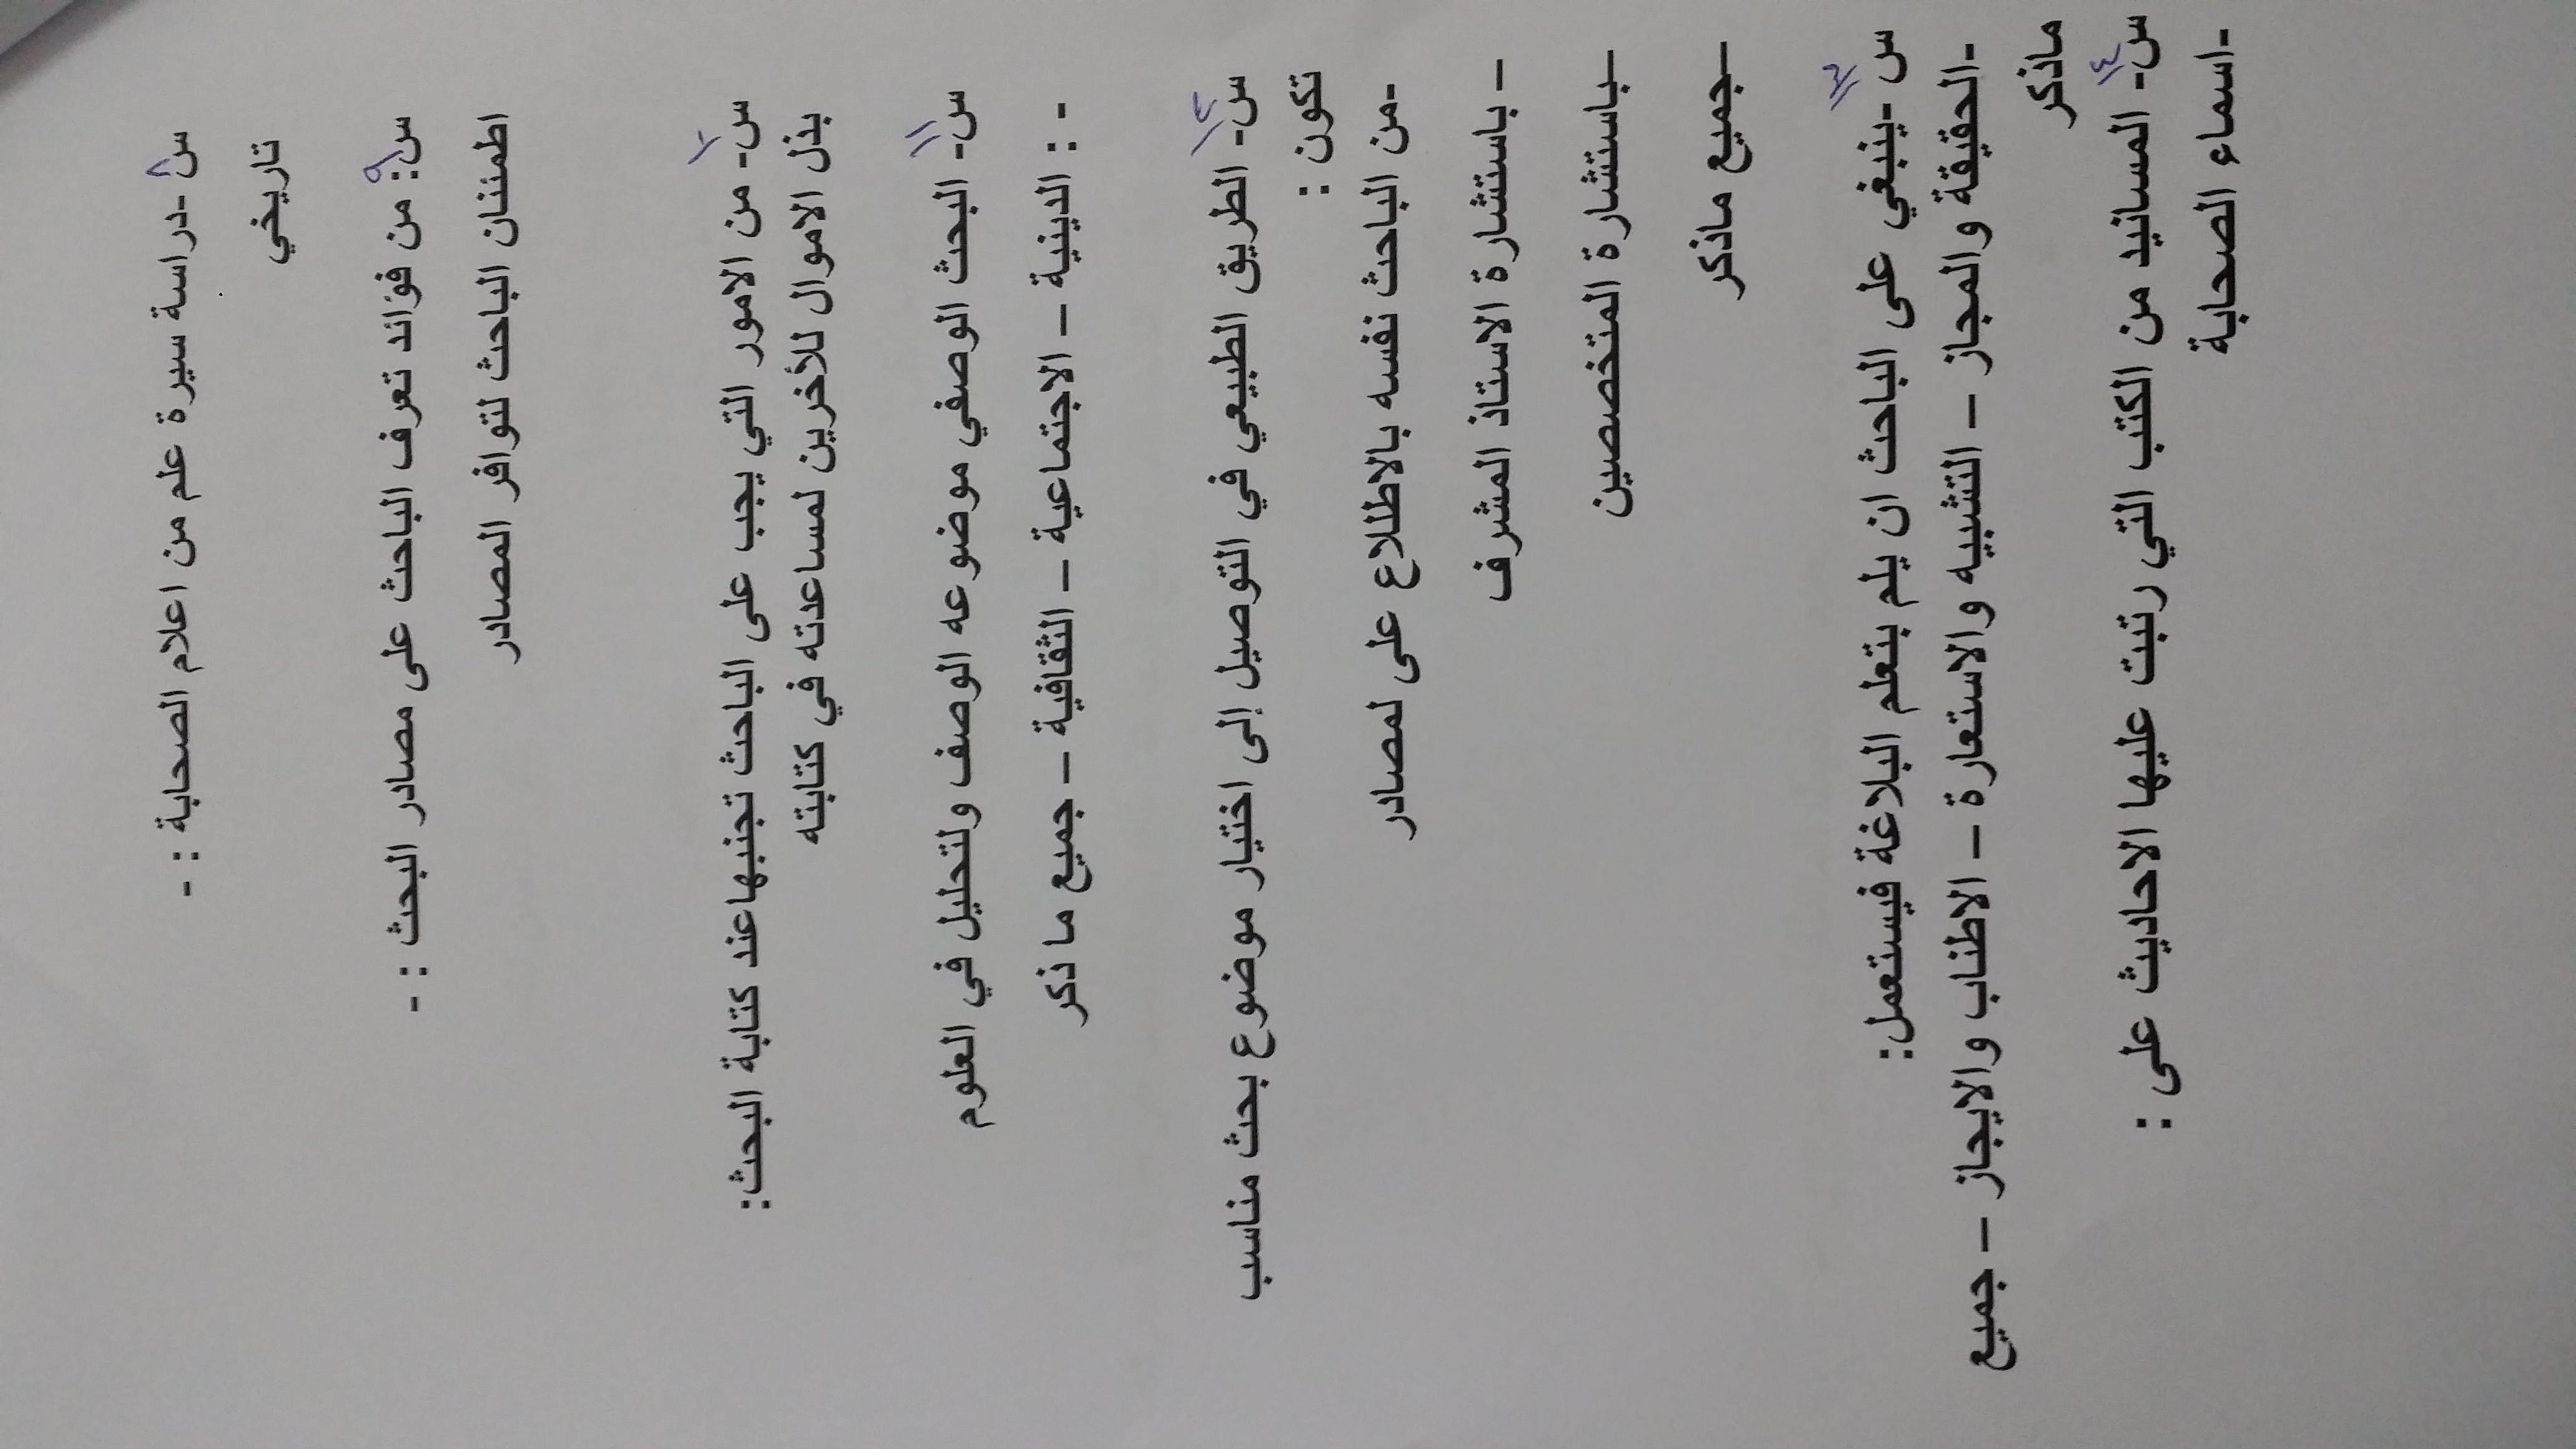 س٨ -دراسة سيرة علم من اعلام الصحابة : -
تاريخي
س٩: من فوائد تعرف الباحث على مصادر البحث : -
اطمئنان الباحث لتوافر المصادر
س- من الامور التي يجب على الباحث تجنبهاعند كتابة البحث:
بذل الاموال للأخرين لمساعدته في كتابته
س١١- البحث الوصفي موضوعه الوصف ولتحليل في العلوم
- : الدينية – الاجتماعية – الثقافية – جميع ما ذكر
س١٢- الطريق الطبيعي في التوصيل إلى اختيار موضوع بحث مناسب
تكون :
-من الباحث نفسه بالاطلاع على لمصادر
– باستشارة الاستاذ المشرف
–باستشارة المتخصصين
–جميع ماذكر
س١٣ -ينبغي على الباحث ان يلم بتعلم البلاغة فيستعمل:
-الحقيقة والمجاز – التشبيه والاستعارة – الاطناب والايجاز – جميع
ماذكر
س١٤- المسانيد من الكتب التي رتبت عليها الاحاديث على :
-اسماء الصحابة